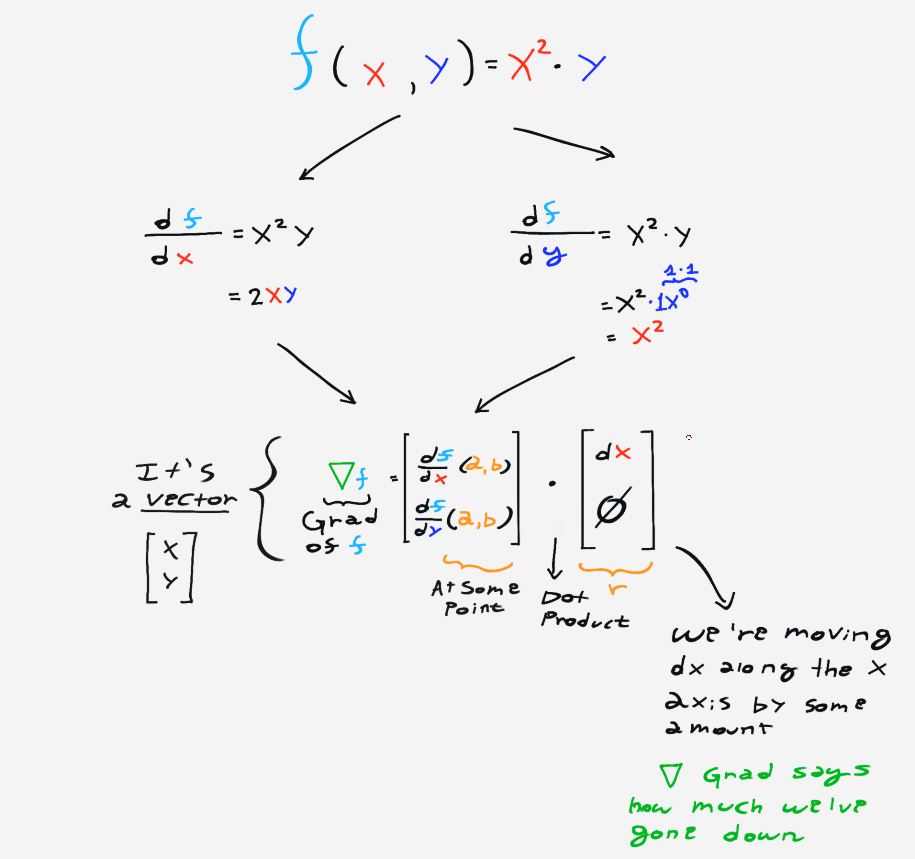 f(x,y)=x²·y
df/dx = x²y
= 2xy
df/dy = x²·y
1·1
= x²·1x⁰
= x²
It's
a vector
[x
y]
∇f
Grad
of f
= [df/dx (a,b)
df/dy (a,b)]
·
[dx
∅]
At some
Point
Dot
Product
r
we're moving
dx along the x
axis by some
amount
∇ Grad says
how much we've
gone down